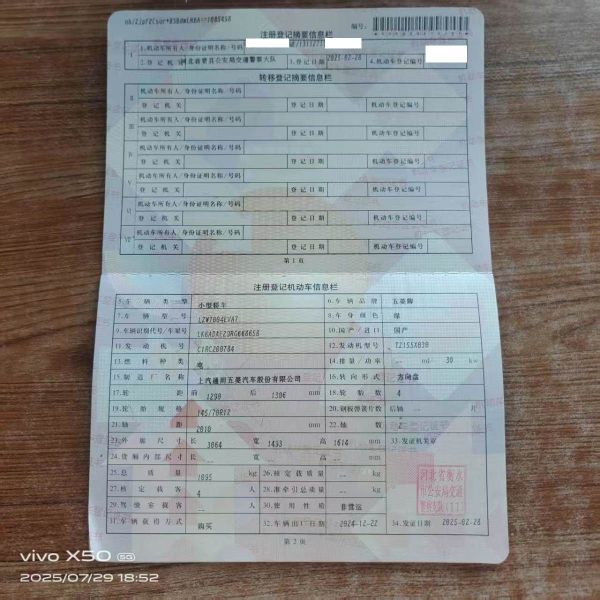 编号:
注册登记摘要信息栏
I 1.机动车所有人/身份证明名称/号码
2.登记机关 河北省景县公安局交通警察大队 3.登记日期 2025-02-28 4.机动车登记编号
转移登记摘要信息栏
II 机动车所有人/身份证明名称/号码
登记机关 登记日期 机动车登记编号
III 机动车所有人/身份证明名称/号码
登记机关 登记日期 机动车登记编号
IV 机动车所有人/身份证明名称/号码
登记机关 登记日期 机动车登记编号
V 机动车所有人/身份证明名称/号码
登记机关 登记日期 机动车登记编号
VI 机动车所有人/身份证明名称/号码
登记机关 登记日期 机动车登记编号
VII 机动车所有人/身份证明名称/号码
登记机关 登记日期 机动车登记编号
第1页
注册登记机动车信息栏
5.车辆类型 小型轿车 6.车辆品牌 五菱牌
7.车辆型号 LZW7004EVA7 8.车身颜色 绿
9.车辆识别代号/车架号 10.国产/进口 国产
11.发动机号 12.发动机型号 TZ155X030
13.燃料种类 电 14.排量/功率 -- ml/ 30 kw
15.制造厂名称 上汽通用五菱汽车股份有限公司 16.转向形式 方向盘
17.轮距 前 1290 后 1306 mm 18.轮胎数 4
19.轮胎规格 145/70R12 20.钢板弹簧片数 后轴 -- 片
21.轴距 2010 mm 22.轴数 2
23.外廓尺寸 长 3064 宽 1493 高 1614 mm 33.发证机关章
24.货厢内部尺寸 长 -- 宽 -- 高 -- mm
25.总质量 1095 kg 26.核定载质量 -- kg
27.核定载客 4 人 28.准牵引总质量 -- kg
29.驾驶室载客 -- 人 30.使用性质 非营运
31.车辆获得方式 购买 32.车辆出厂日期 2024-12-22 34.发证日期 2025-02-28
河北省衡水
市公安局交通
警察支队(11)
第2页
vivo X50 5G
2025/07/29 18:52